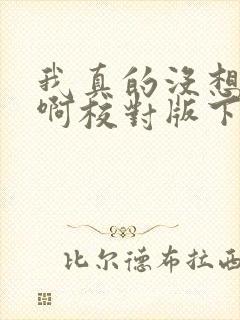 我真的没想
啊校对版下
比尔德布拉西